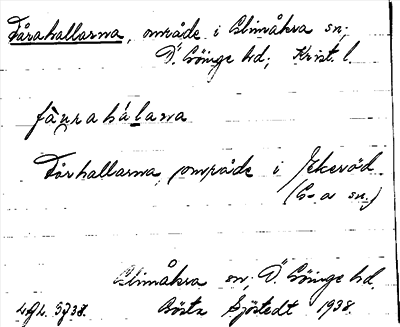 Fårahallarna, område i Glimåkra sn;
Ö. Göinge hd; Krist. l.
fåurahálana
Fårhallarna, område i Ekeröd
(G-a sn.)
Glimåkra sn; Ö. Göinge hd.
Gösta Sjöstedt 1938.